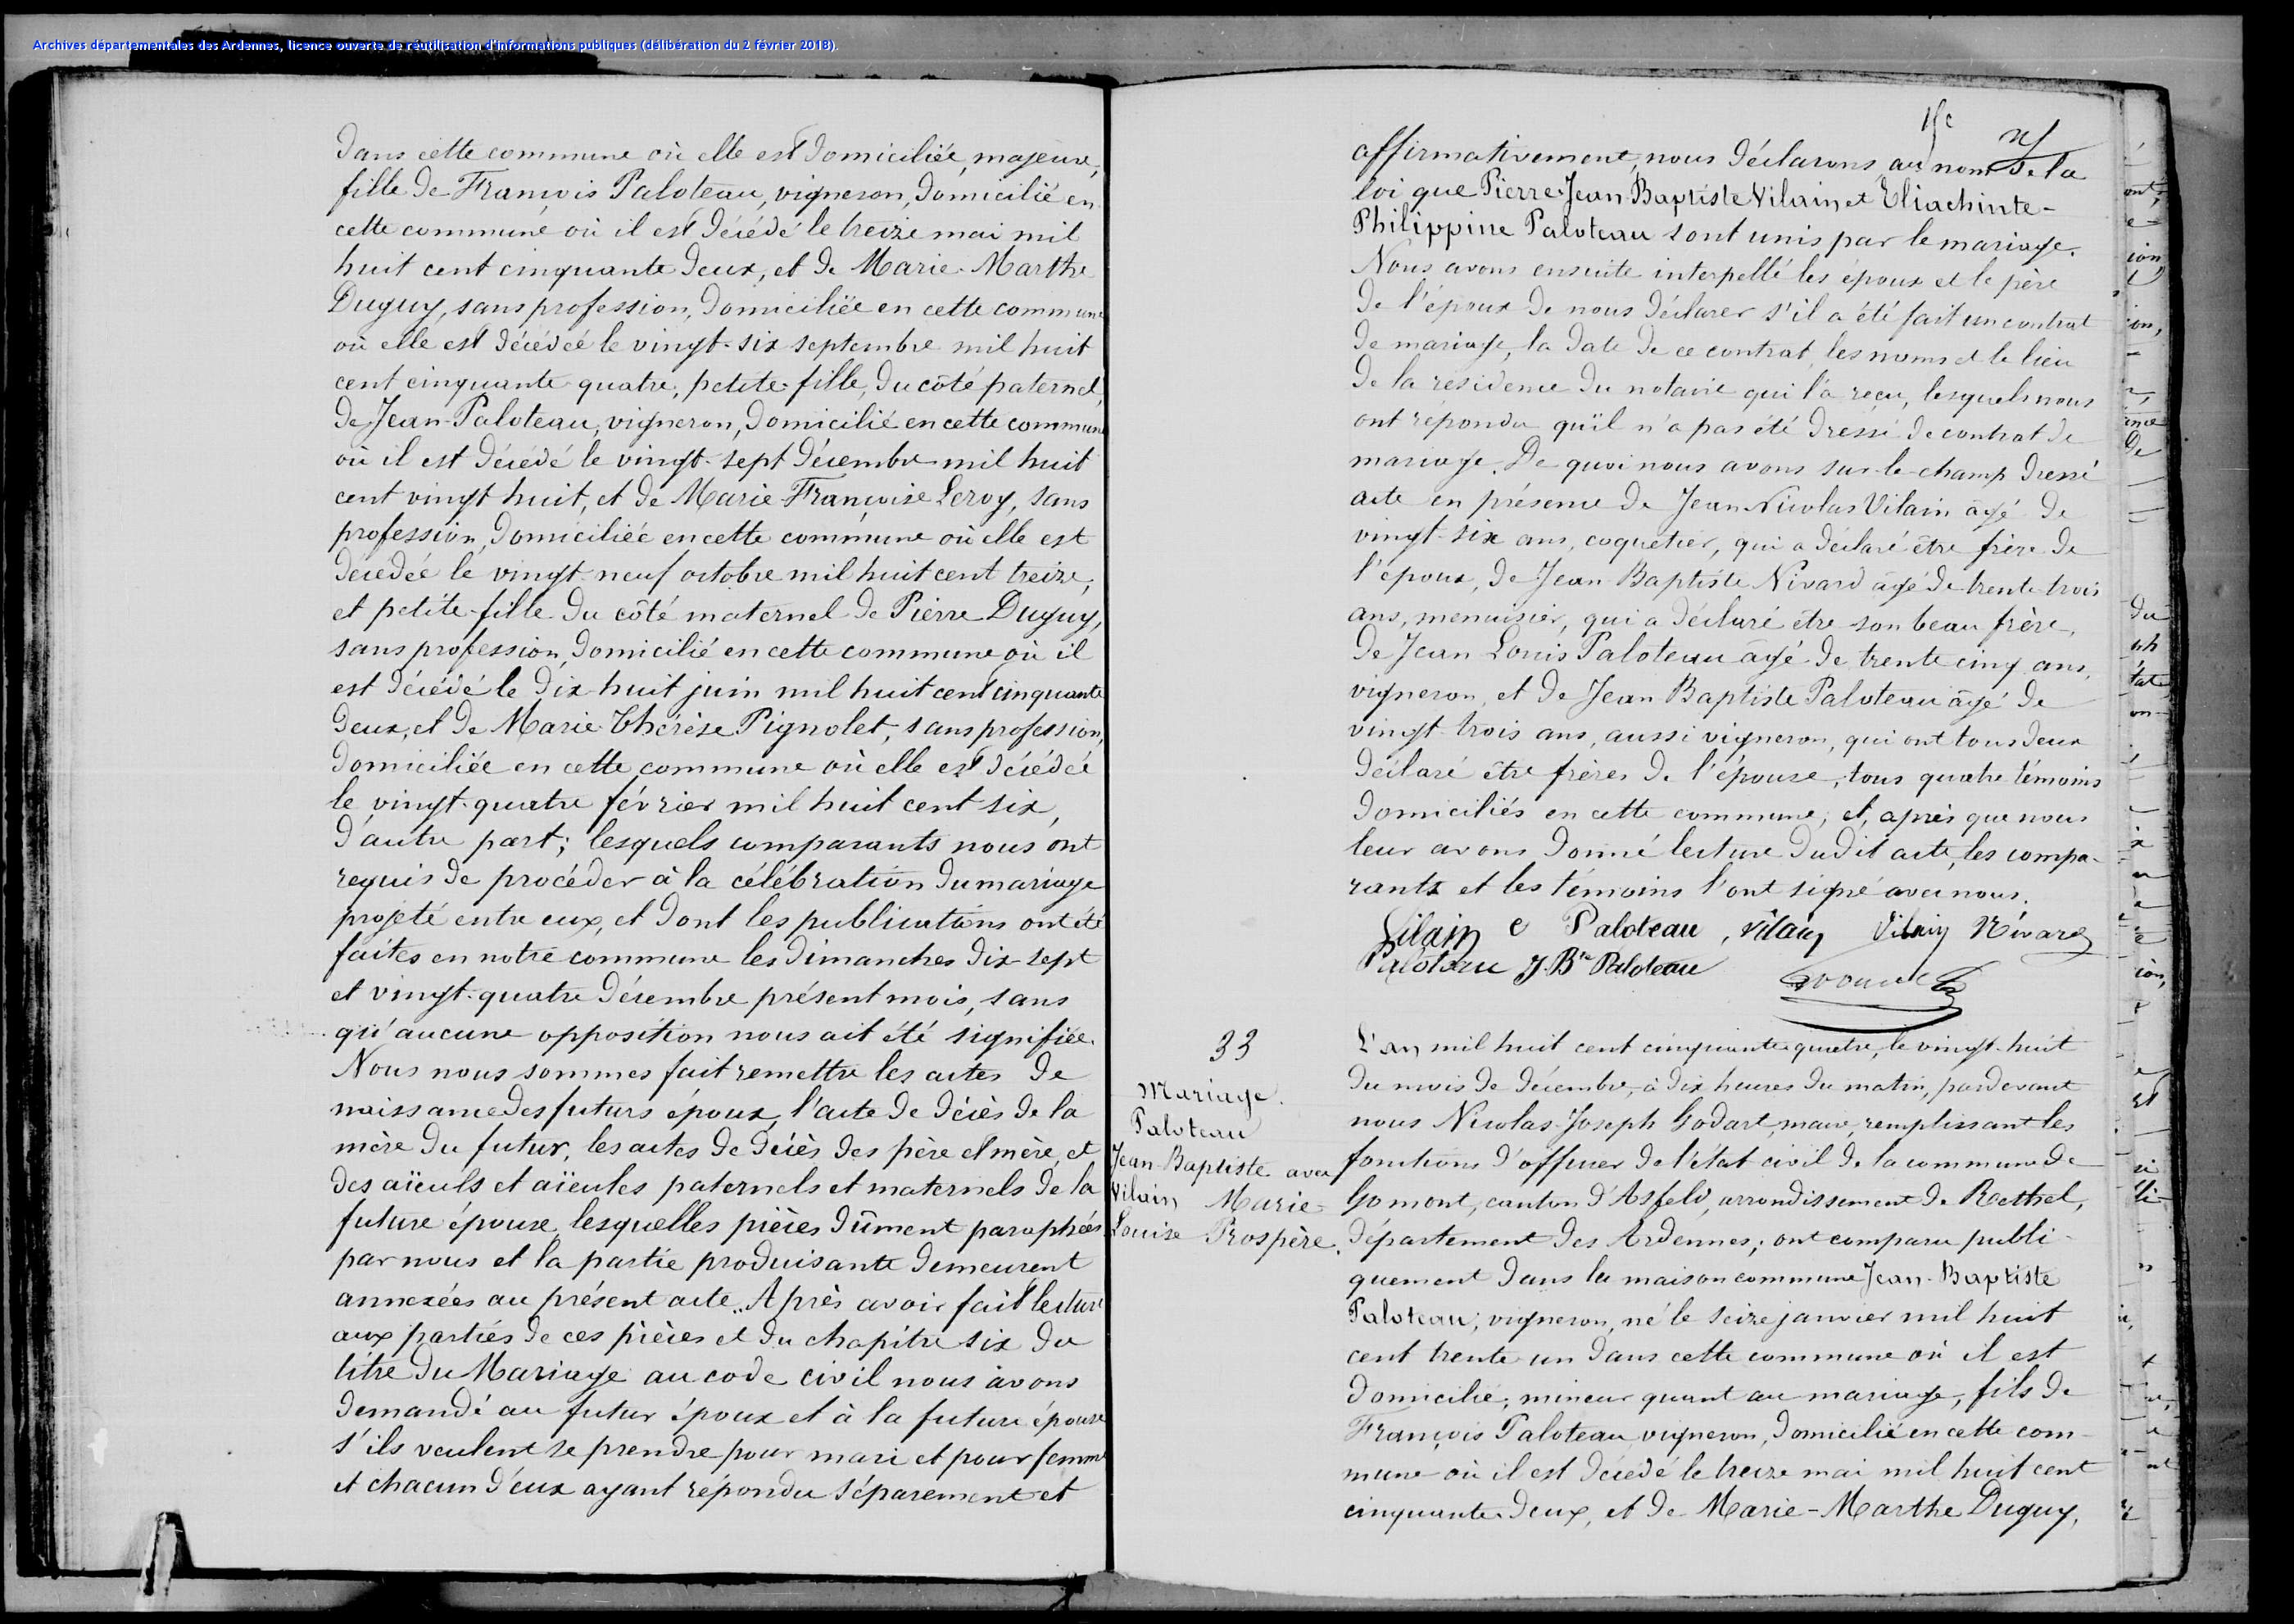 Archives départementales des Ardennes, licence ouverte de réutilisation d'informations publiques (délibération du 2 février 2018).
dans cette commune où elle est domiciliée, majeure,
fille de François Paloteau, vigneron, domicilié en
cette commune où il est décédé le treize mai mil
huit cent cinquante deux, et de Marie-Marthe
Duguy, sans profession, domiciliée en cette commune
où elle est décédée le vingt-six septembre mil huit
cent cinquante quatre, petite-fille, du côté paternel,
de Jean Paloteau, vigneron, domicilié en cette commune
où il est décédé le vingt-sept décembre mil huit
cent vingt huit, et de Marie Françoise Leroy, sans
profession, domiciliée en cette commune où elle est
décédée le vingt-neuf octobre mil huit cent treize,
et petite-fille du côté maternel de Pierre Duguy,
sans profession, domicilié en cette commune où il
est décédé le dix huit juin mil huit cent cinquante
deux, et de Marie Thérèse Pignolet, sans profession,
domiciliée en cette commune où elle est décédée
le vingt-quatre février mil huit cent six,
d'autre part; lesquels comparants nous ont
requis de procéder à la célébration du mariage
projeté entre eux, et dont les publications ont été
faites en notre commune les dimanches dix-sept
et vingt-quatre décembre présent mois, sans
qu'aucune opposition nous ait été signifiée.
Nous nous sommes fait remettre les actes de
naissance des futurs époux, l'acte de décès de la
mère du futur, les actes de décès des père et mère, et
des aïeuls et aïeules paternels et maternels de la
future épouse, lesquelles pièces dûment paraphées
par nous et la partie produisante demeurent
annexées au présent acte. Après avoir fait lecture
aux parties de ces pièces et du chapitre six du
titre du Mariage au code civil nous avons
demandé au futur époux et à la future épouse
s'ils veulent se prendre pour mari et pour femme
et chacun d'eux ayant répondu séparement et
affirmativement, nous déclarons au nom de la
loi que Pierre Jean Baptiste Vilain et Eliachinte-
Philippine Paloteau sont unis par le mariage.
Nous avons ensuite interpellé les époux et le père
de l'époux de nous déclarer s'il a été fait un contrat
de mariage, la date de ce contrat, les noms et le lieu
de la résidence du notaire qui l'a reçu, lesquels nous
ont répondu qu'il n'a pas été dressé de contrat de
mariage. De quoi nous avons sur-le-champ dressé
acte en présence de Jean Nicolas Vilain âgé de
vingt-six ans, coquetier, qui a déclaré être frère de
l'époux, de Jean Baptiste Nivard âgé de trente-trois
ans, menuisier, qui a déclaré être son beau frère,
de Jean Louis Paloteau âgé de trente cinq ans,
vigneron, et de Jean Baptiste Paloteau âgé de
vingt-trois ans, aussi vigneron, qui ont tous deux
déclaré être frères de l'épouse, tous quatre témoins
domiciliés en cette commune; et, après que nous
leur avons donné lecture dudit acte, les compa-
rants et les témoins l'ont signé avec nous.
Vilain e Paloteau, Vilain Vilain Nivard
Paloteau J. Bte Paloteau
33
Mariage.
Paloteau
Jean-Baptiste avec
Vilain Marie-
Louise Prospère.
L'an mil huit cent cinquante quatre, le vingt-huit
du mois de décembre, à dix heures du matin, pardevant
nous Nicolas-Joseph Godart, maire, remplissant les
fonctions d'officier de l'état civil de la commune de
Gomont, canton d'Asfeld, arrondissement de Roethel,
département des Ardennes; ont comparu publi-
quement dans la maison commune Jean-Baptiste
Paloteau; vigneron, né le seize janvier mil huit
cent trente-un dans cette commune où il est
domicilié; mineur quant au mariage, fils de
François Paloteau vigneron, domicilié en cette com-
mune où il est décédé le treize mai mil huit cent
cinquante-deux, et de Marie-Marthe Duguy,